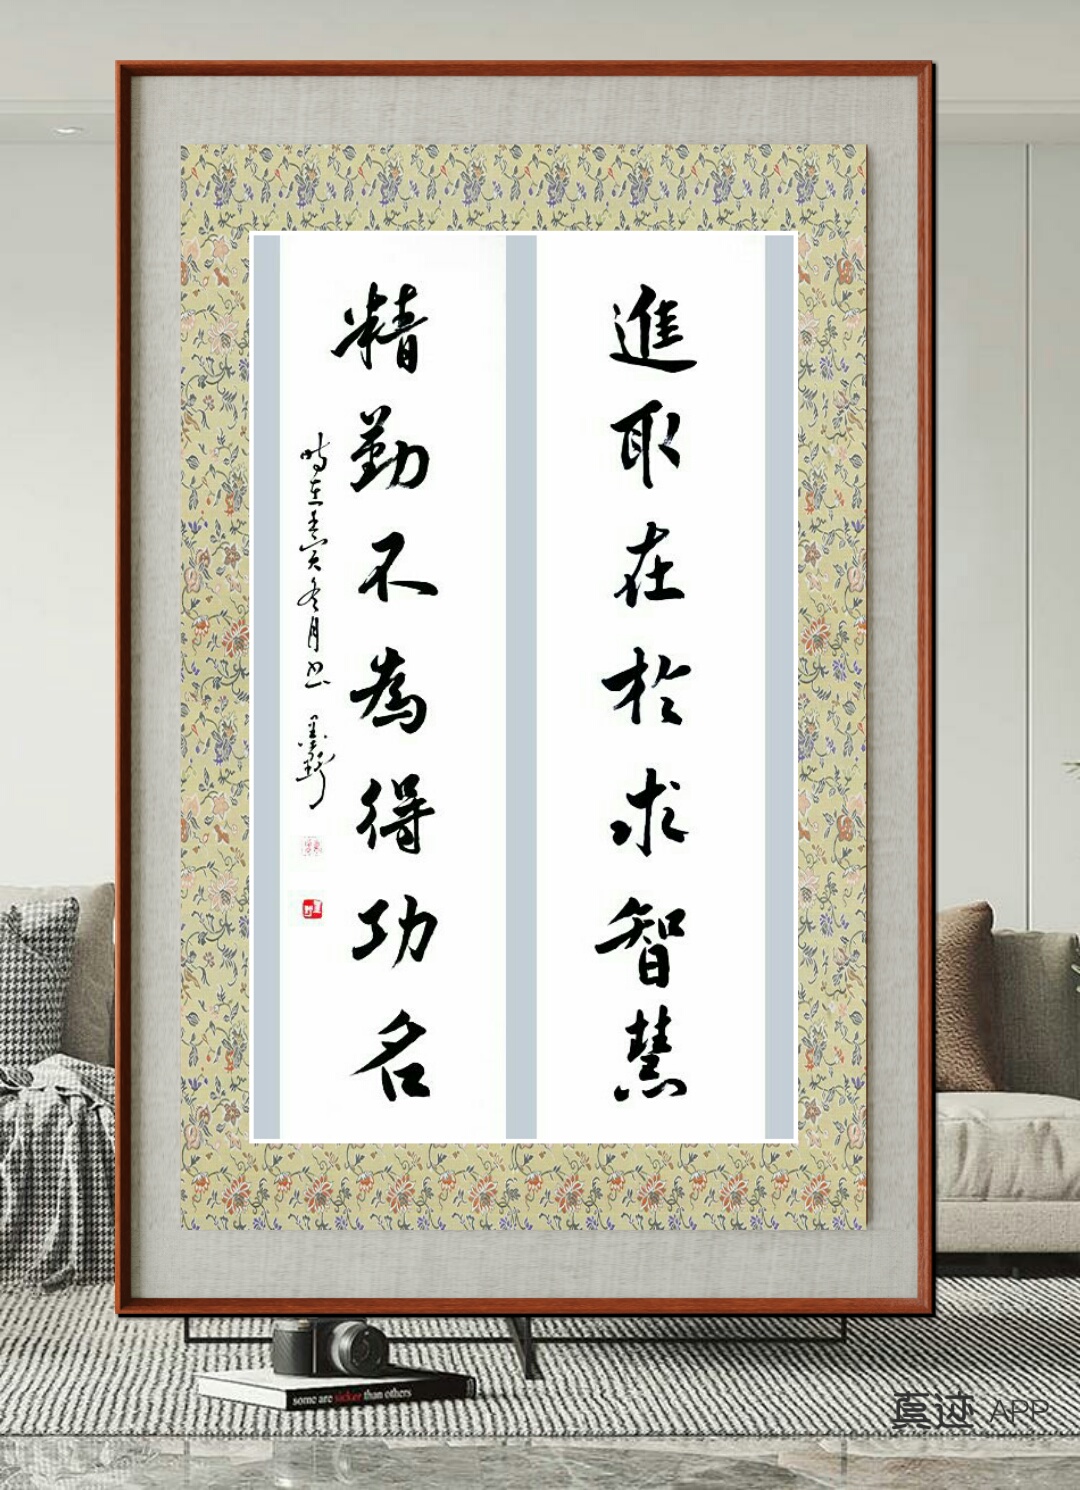 進取在於求智慧
精勤不為得功名
時在壬寅冬月書
some are sicker than others
真迹 APP